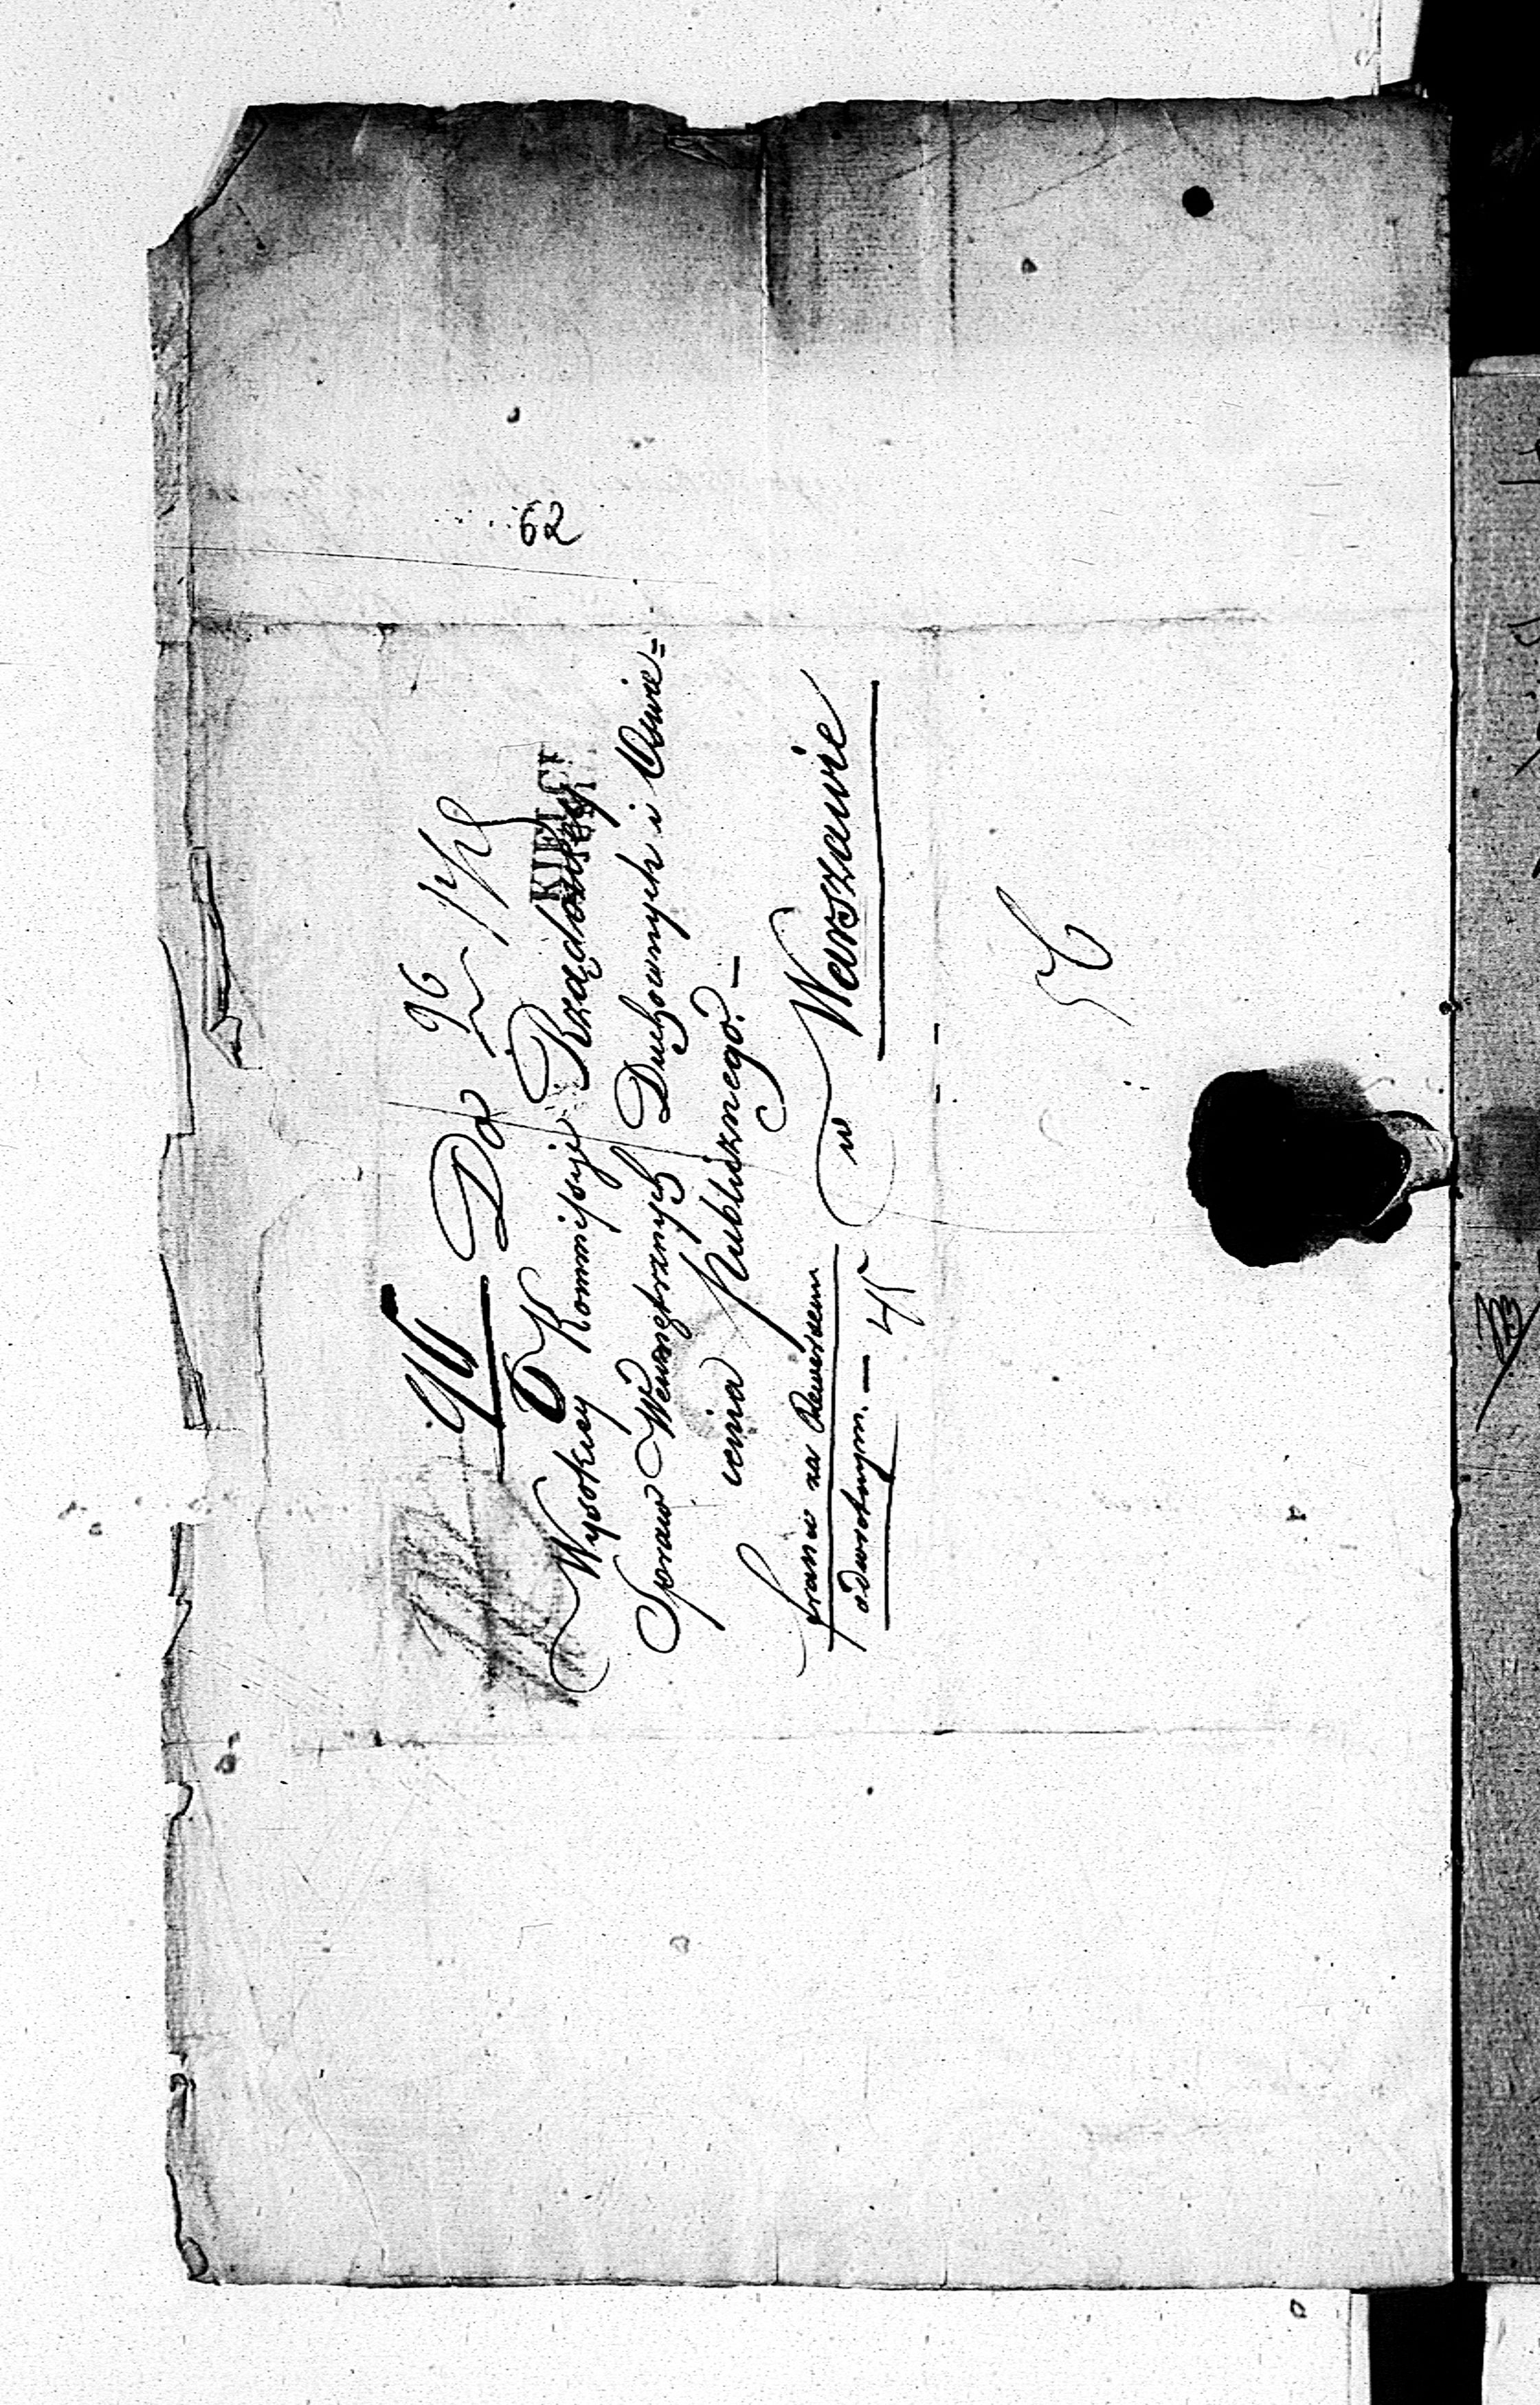 62
96
Do
KIELCE
Wysokiey Kommissyi Rządowey
Spraw Wewnętrznych Duchownych i Oświe=
cenia Publicznego.—
w Warszawie
franco za Rewersem
odwrotnym. — 45